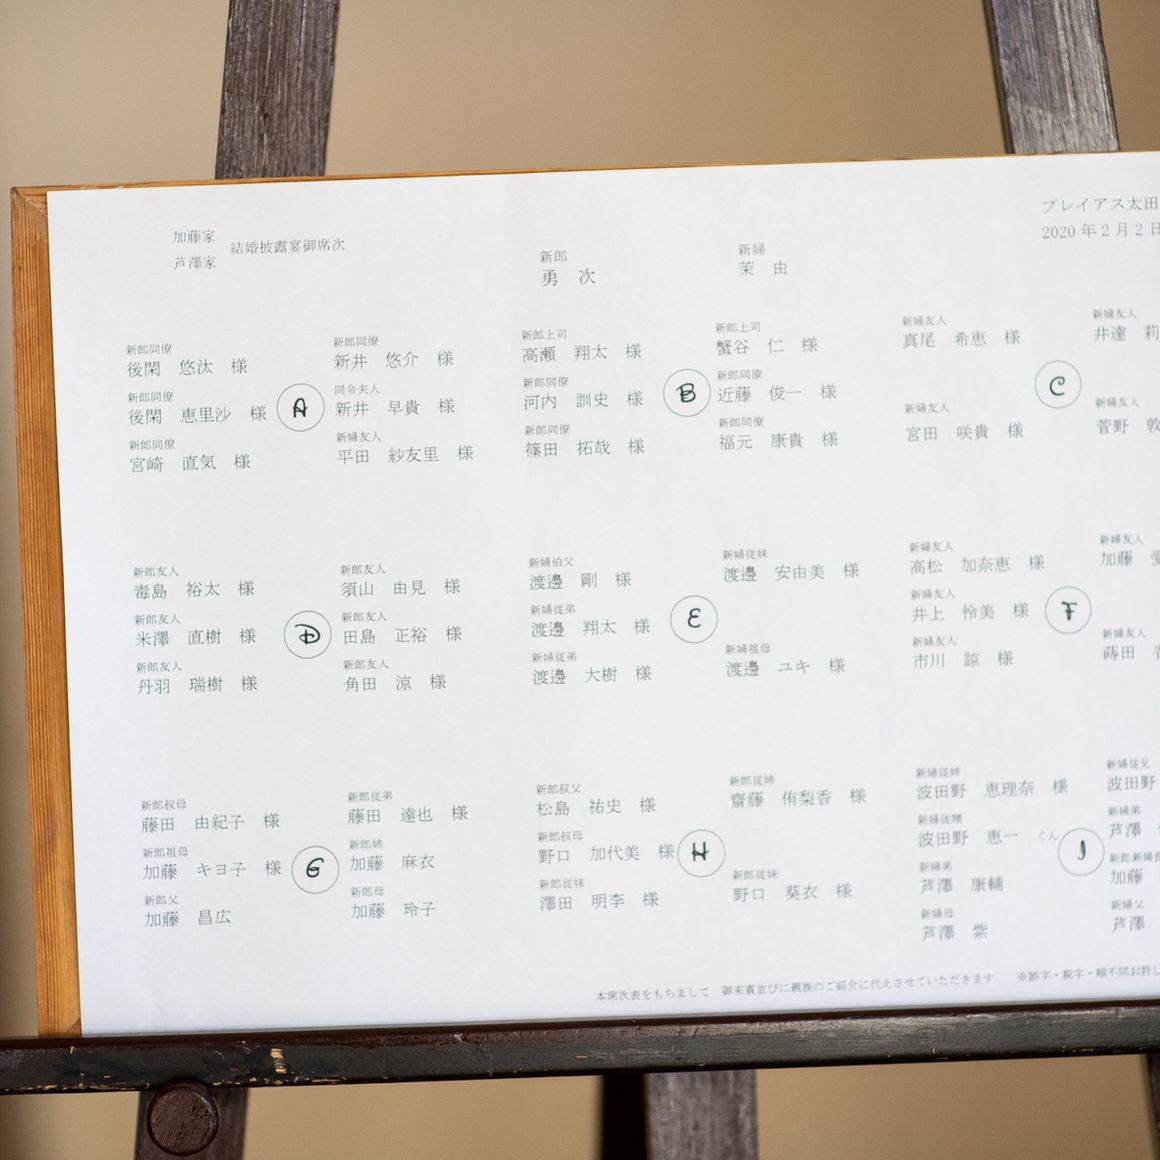 加藤家
芦澤家
結婚披露宴御席次
新郎
勇 次
新婦
茉 由
プレイアス太田
2020年2月2日
新郎同僚
後閑 悠汰 様
新郎同僚
後閑 恵里沙 様
新郎同僚
宮崎 直気 様
A
新郎同僚
新井 悠介 様
同令夫人
新井 早貴 様
新婦友人
平田 紗友里 様
新郎上司
高瀬 翔太 様
新郎同僚
河内 訓史 様
新郎同僚
篠田 拓哉 様
B
新郎上司
蟹谷 仁 様
新郎同僚
近藤 俊一 様
新郎同僚
福元 康貴 様
新婦友人
真尾 希恵 様
新婦友人
宮田 咲貴 様
C
新婦友人
井達 莉
新婦友人
菅野 敦
新郎友人
毒島 裕太 様
新郎友人
米澤 直樹 様
新郎友人
丹羽 瑞樹 様
D
新郎友人
須山 由見 様
新郎友人
田島 正裕 様
新郎友人
角田 涼 様
新婦伯父
渡邊 剛 様
新婦従弟
渡邊 翔太 様
新婦従弟
渡邊 大樹 様
E
新婦従妹
渡邊 安由美 様
新婦祖母
渡邊 ユキ 様
新婦友人
高松 加奈恵 様
新婦友人
井上 怜美 様
新婦友人
市川 諒 様
F
新婦友人
加藤
新婦友人
蒔田
新郎叔母
藤田 由紀子 様
新郎祖母
加藤 キヨ子 様
新郎父
加藤 昌広
G
新郎従弟
藤田 達也 様
新郎姉
加藤 麻衣
新郎母
加藤 玲子
新郎叔父
松島 祐史 様
新郎叔母
野口 加代美 様
新郎従妹
澤田 明李 様
H
新郎従姉
齋藤 侑梨香 様
新郎従妹
野口 葵衣 様
新婦従姉
波田野 恵理奈 様
新婦従甥
波田野 恵一 くん
新婦弟
芦澤 康輔
新婦母
芦澤 紫
I
新婦従兄
波田野
新婦弟
芦澤
新郎新婦長
加藤
新婦父
芦澤
本席次表をもちまして 御来賓並びに親族のご紹介に代えさせていただきます
※誤字・脱字・順不同お許し